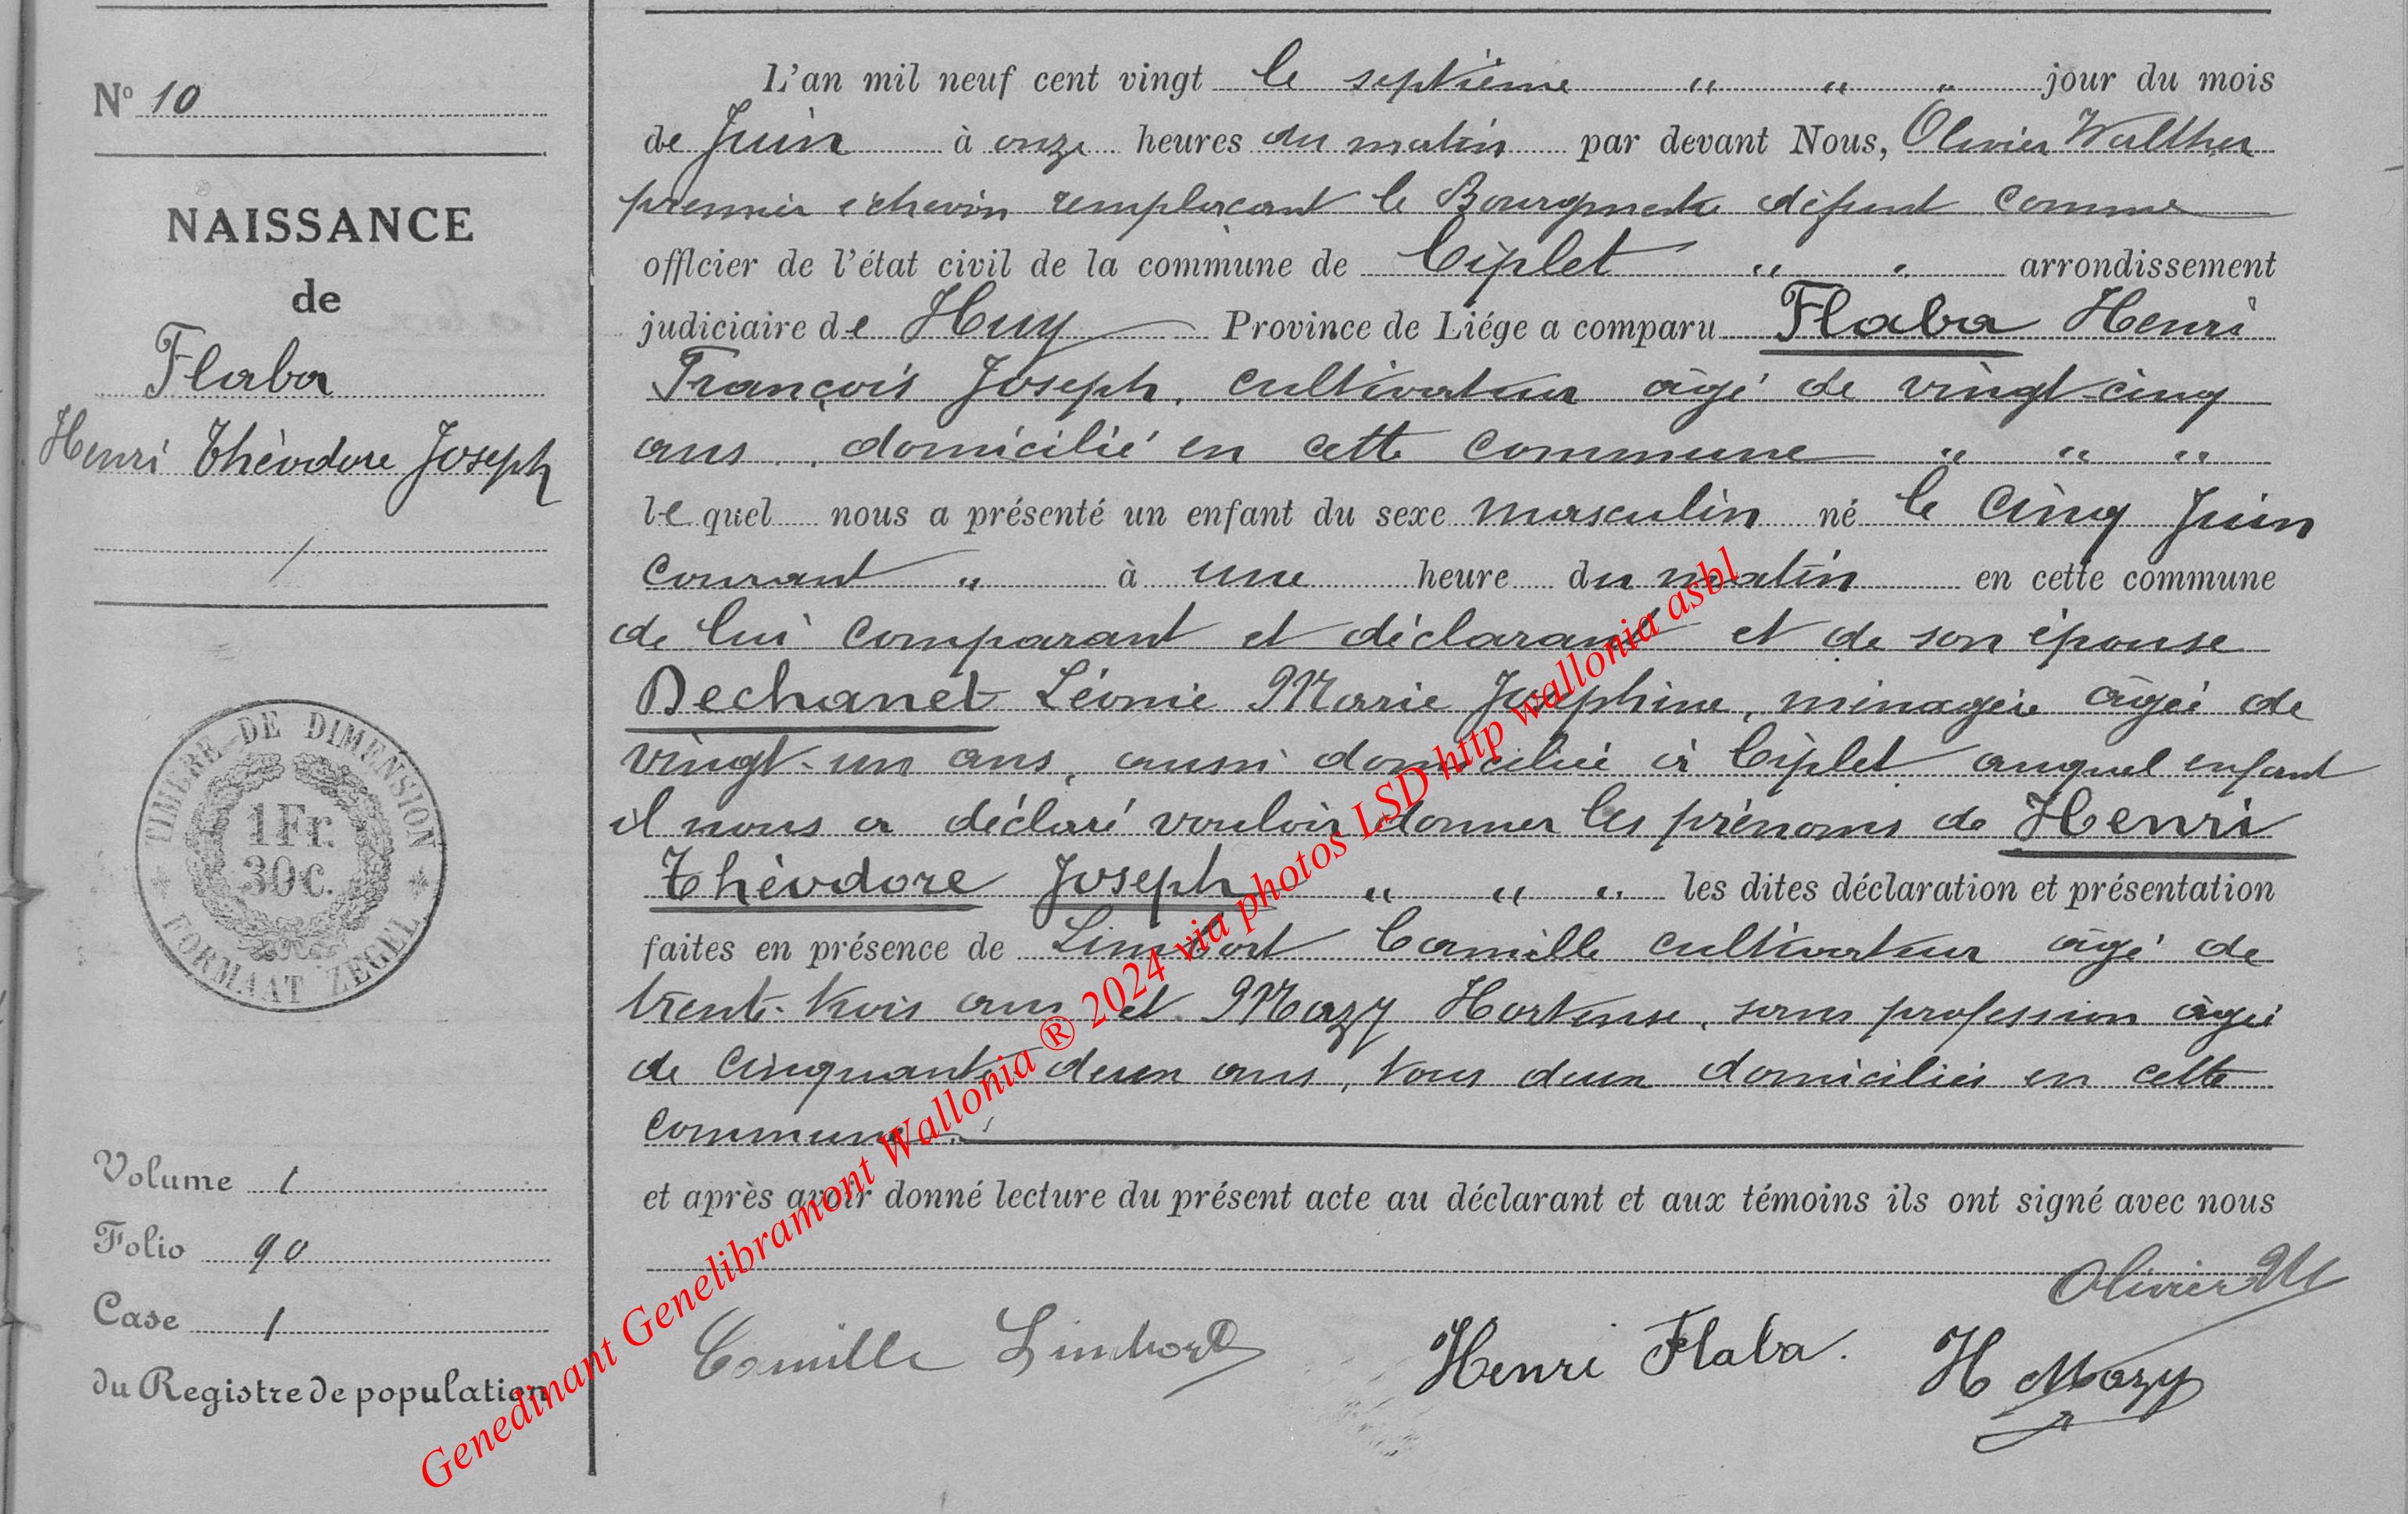 N° 10
NAISSANCE
de
Flaba
Henri Théodore Joseph
TIMBRE DE DIMENSION
1 Fr.
30 c.
FORMAAT ZEGEL
Volume 1
Folio 90
Case 1
du Registre de population
L'an mil neuf cent vingt le septième " " " jour du mois
de Juin à onze heures du matin par devant Nous, Olivier Walther
premier échevin remplaçant le Bourgmestre défunt comme
officier de l'état civil de la commune de Ciplet " " arrondissement
judiciaire de Huy Province de Liége a comparu Flaba Henri
François Joseph, cultivateur âgé de vingt-cinq
ans, domicilié en cette commune " " "
lequel nous a présenté un enfant du sexe masculin né le cinq Juin
courant " à une heure du matin en cette commune
de lui comparant et déclarant et de son épouse
Dechanet Léonie Marie Joséphine, ménagère âgée de
vingt-un ans, aussi domiciliée à Ciplet auquel enfant
il nous a déclaré vouloir donner les prénoms de Henri
Théodore Joseph " " " les dites déclaration et présentation
faites en présence de Limbort Camille cultivateur âgé de
trente-trois ans et Mazy Hortense, sans profession âgée
de cinquante deux ans, tous deux domiciliés en cette
commune.
et après avoir donné lecture du présent acte au déclarant et aux témoins ils ont signé avec nous
Olivier W
Camille Limbort Henri Flaba. H Mazy
Genedinant Genelibramont Wallonia ® 2024 via photos LSD http wallonia asbl